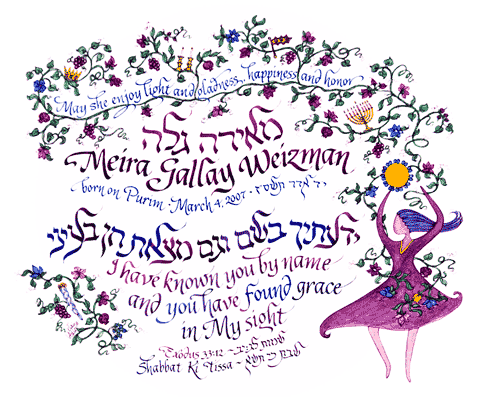 May she enjoy light and gladness, happiness and honor
מאירה גלה
Meira Gallay Weizman
born on Purim · March 4, 2007 · יד אדר תשס״ז
ידעתיך בשם וגם מצאת חן בעיני
I have known you by name
and you have found grace
in My sight
Exodus 33:12 - שמות
Shabbat Ki Tissa - שבת כי תשא